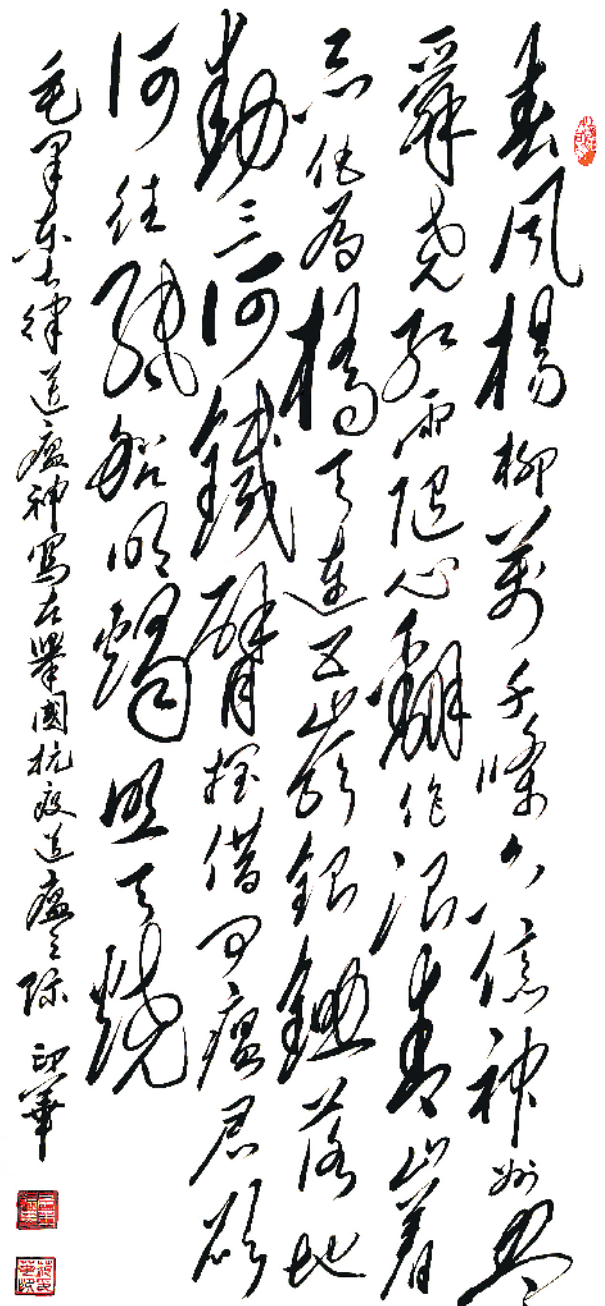 春風楊柳萬千條六億神州盡
舜堯紅雨隨心翻作浪青山着
意化為橋天連五嶺銀鋤落地
動三河鐵臂搖借問瘟君欲
何往紙船明燭照天燒
毛澤東七律送瘟神寫在舉國抗疫送瘟之際 印華